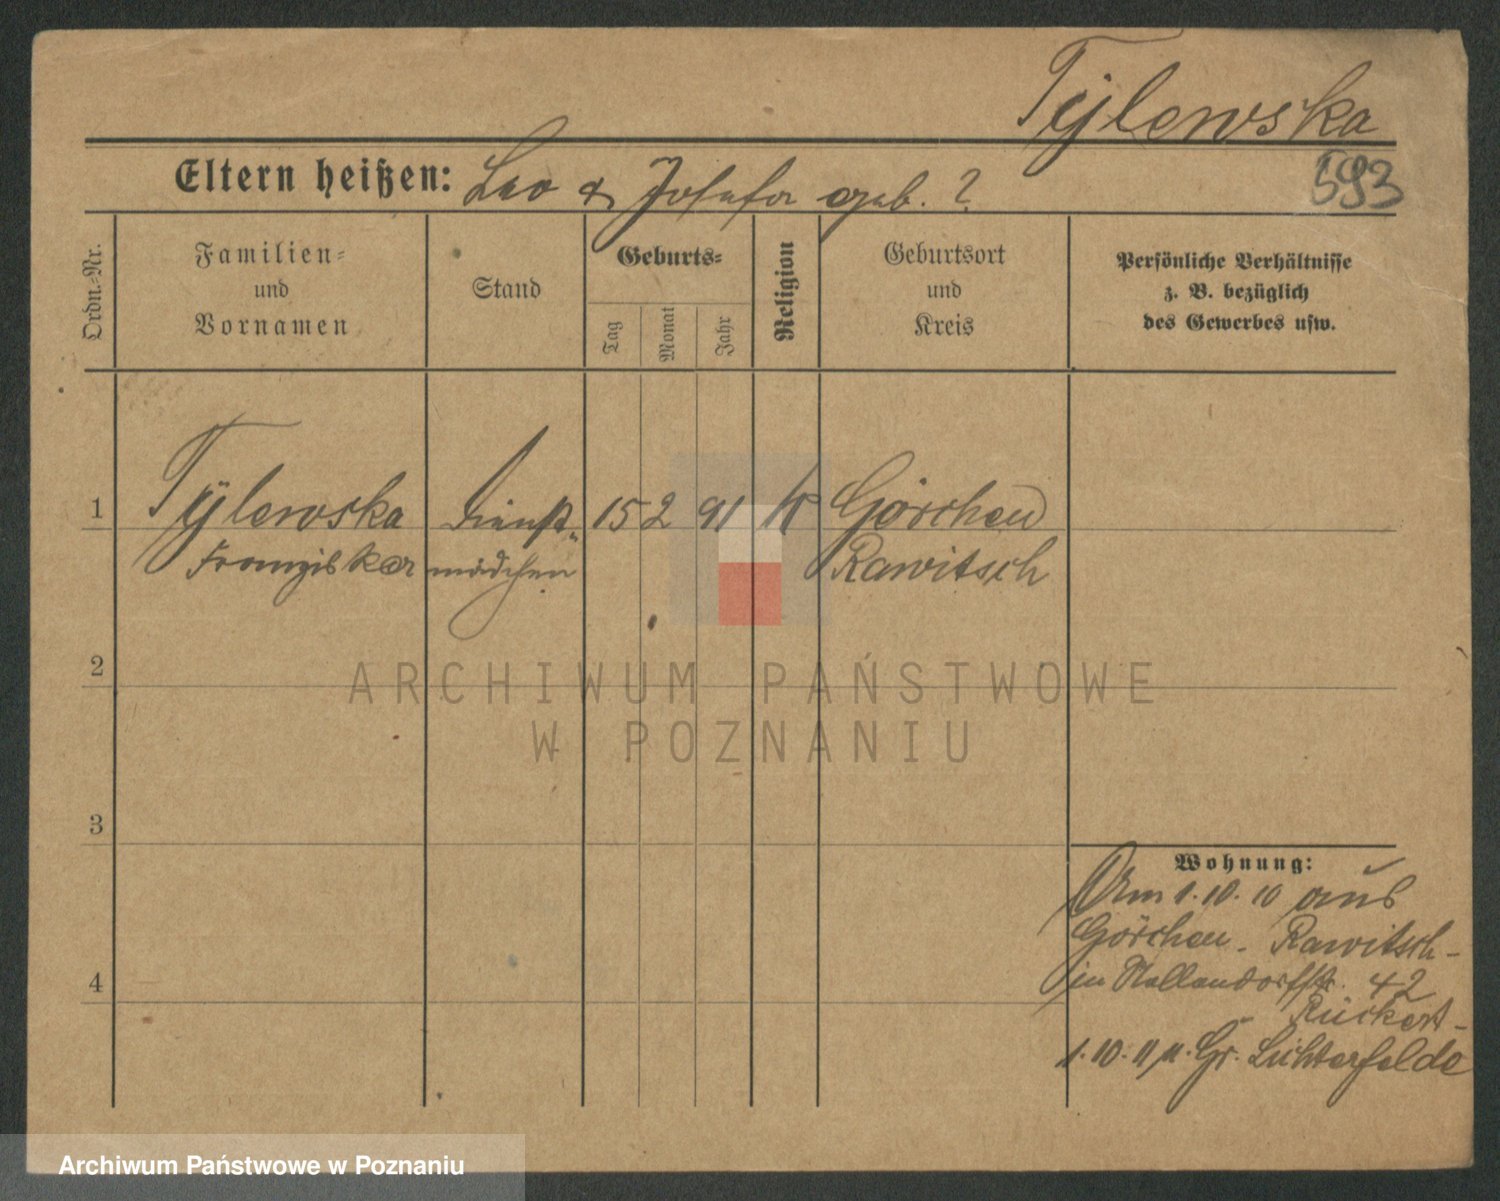 Tÿlewska
593
Eltern heißen: Leo & Josefa geb. ?
Ordn.-Nr.
Familien-
und
Vornamen
Stand
Geburts-
Tag
Monat
Jahr
Religion
Geburtsort
und
Kreis
Persönliche Verhältnisse
z. B. bezüglich
des Gewerbes usw.
1 Tÿlewska Dienst- 15 2 91 K Görchen
Franziska mädchen Rawitsch
2
3
4
Wohnung:
Am 1.10.10 aus
Görchen - Rawitsch -
in Hollandorffstr. 42
Rückert
1.10.11 n. Gr. Lichterfelde
ARCHIWUM PAŃSTWOWE
W POZNANIU
Archiwum Państwowe w Poznaniu